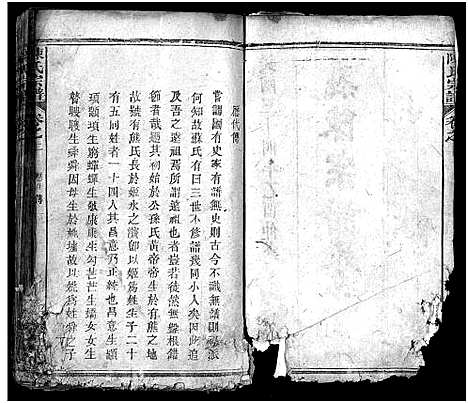 歷代傳
嘗謂國有史家有譜無史則古今不識無譜則宗
何知故蘇氏有曰三世不修譜幾同小人矣因此追
及吾之遠祖所謂遠祖也者豈若徒然無盤根錯
節者哉遡其初始於公孫氏黃帝帝生於有熊之地
故號有熊氏長於姬水之濱卽以姬為姓生子二十
有五同姓者一十四人其昌意乃正純也昌意生顓
頊顓項生窮蟬蟬生敬康康生勾芒芒生蟜女女生
瞽瞍瞍生舜舜因母生於姚墟故以姚為姓舜之子
陳氏宗譜
卷之